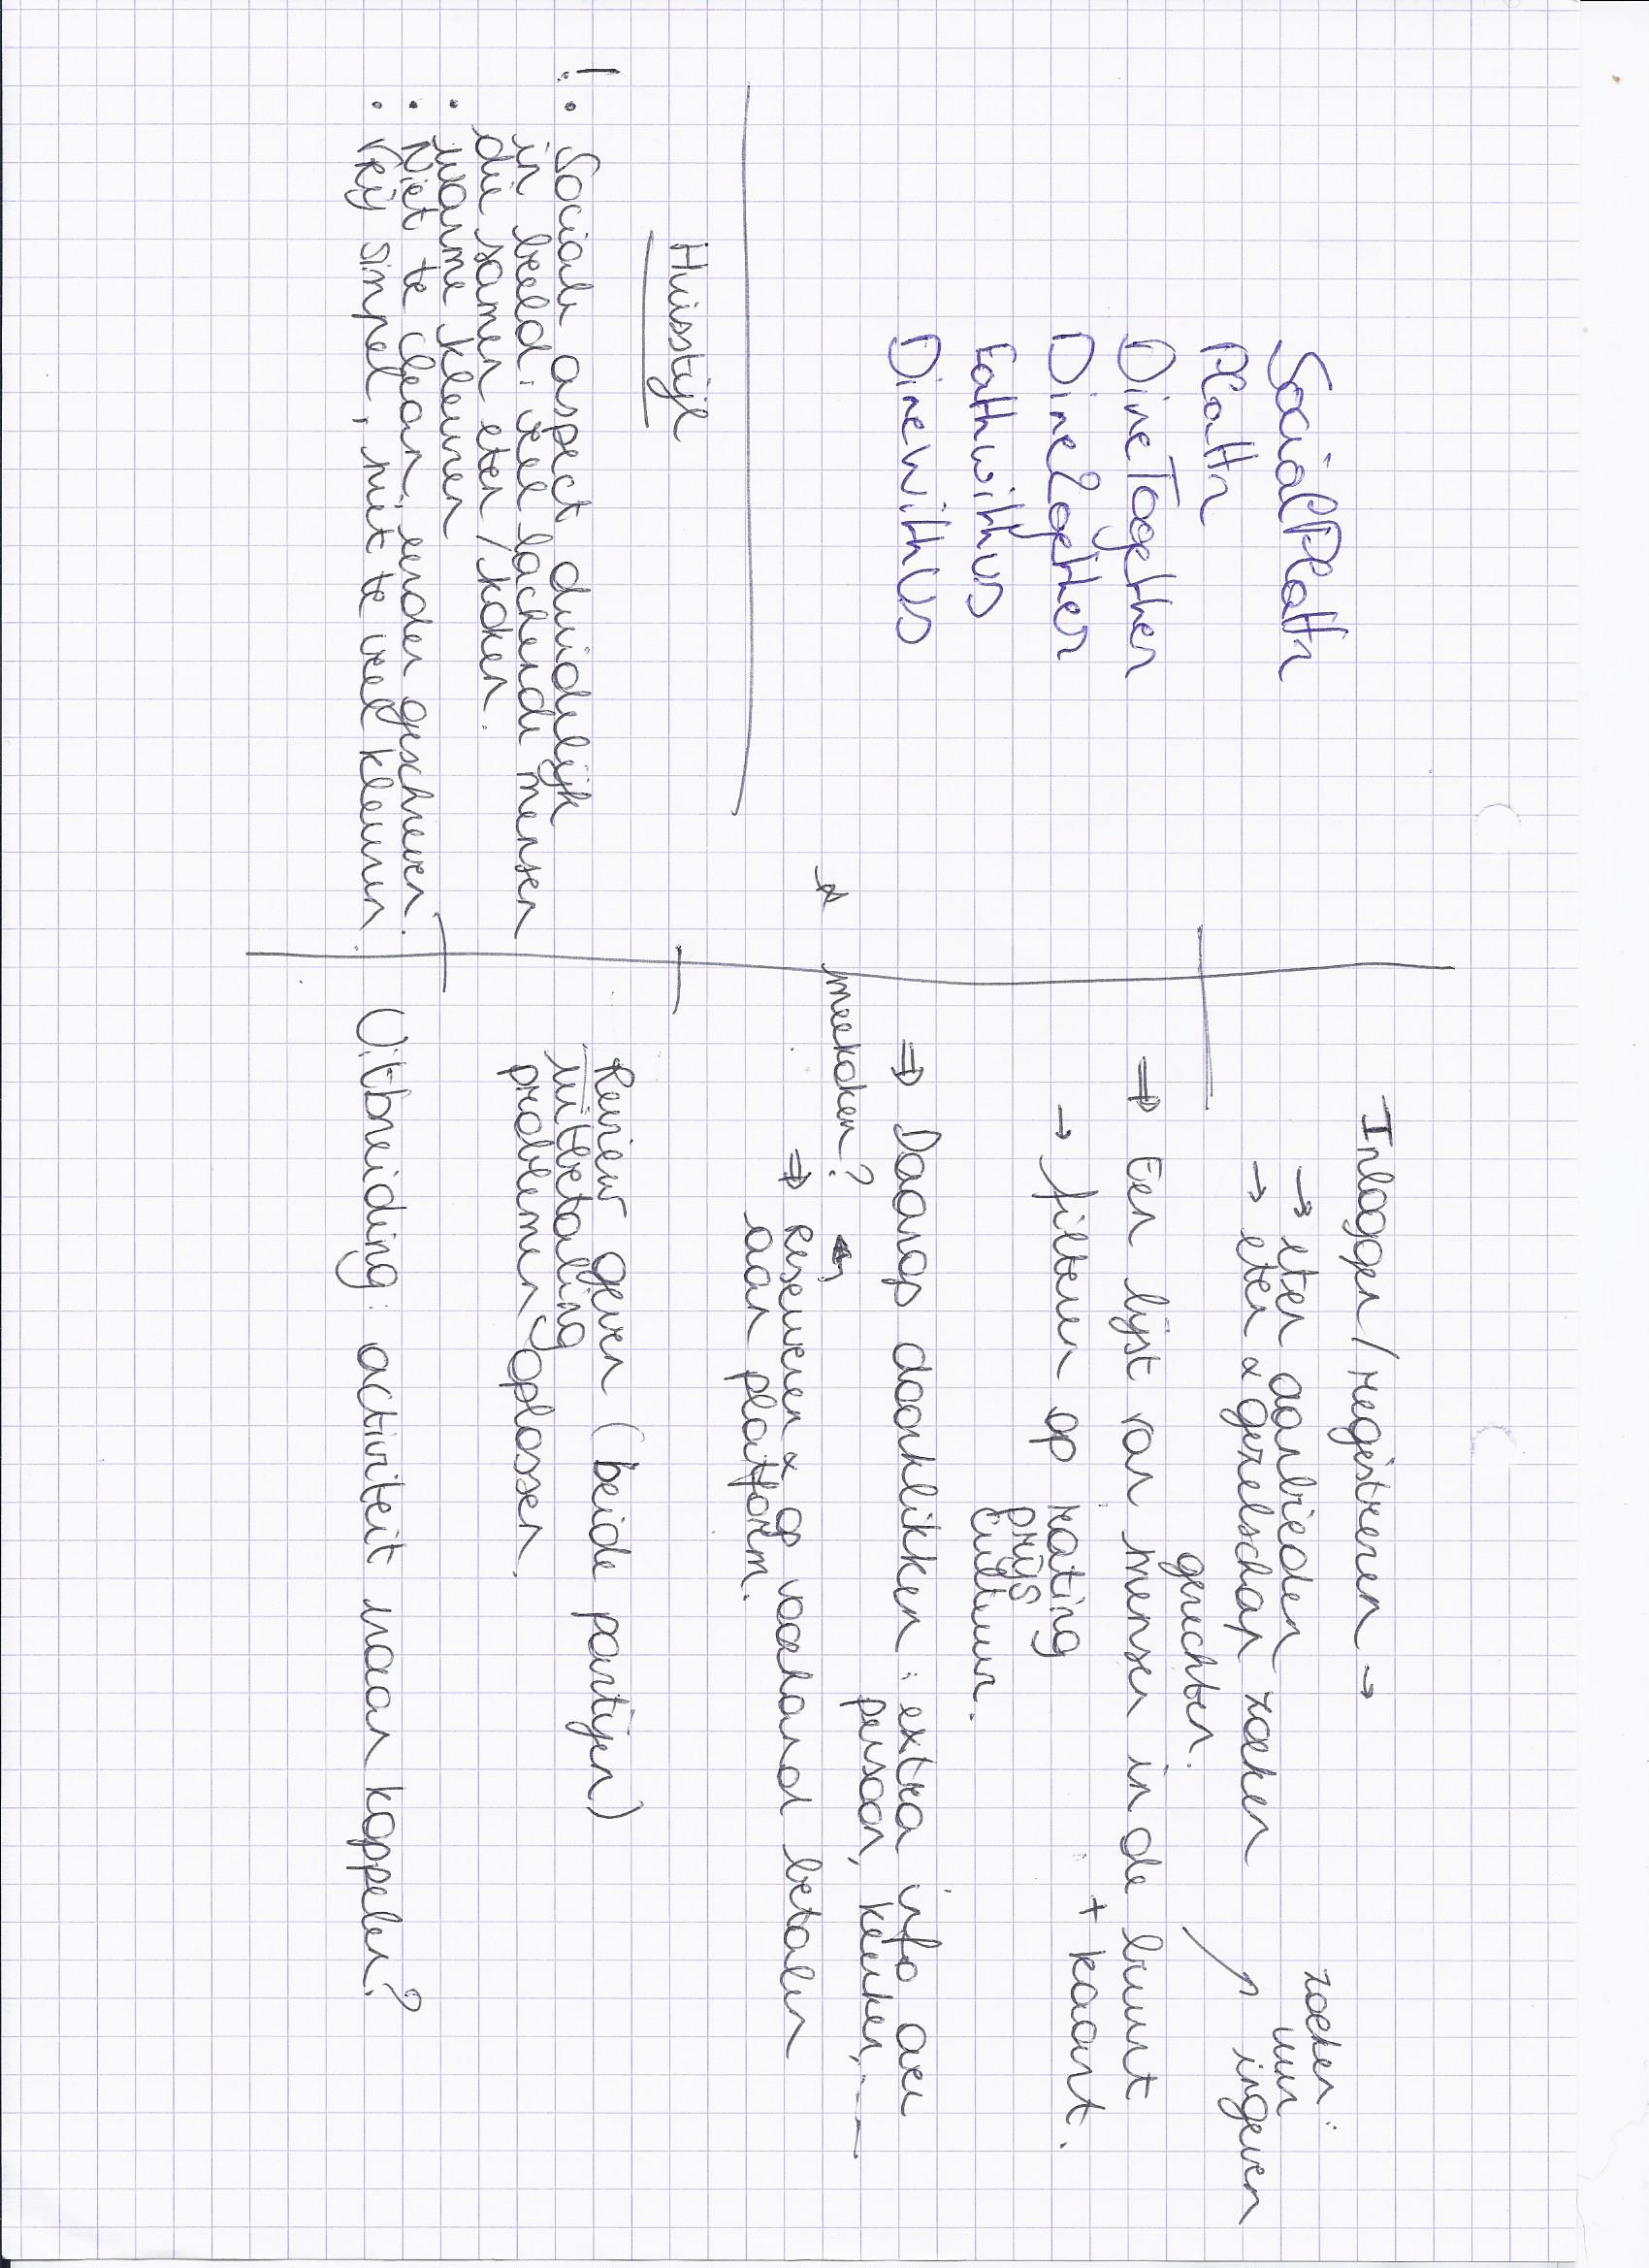 SocialPlattr
Plattr
DineTogether
Dine2gether
Eathwithus
DineWithUs
Huisstijl
! • Sociale aspect duidelijk
in beeld: veel lachende mensen
die samen eten / koken.
• warme kleuren
• Niet te clean, eerder geschreven.
• Vrij simpel, niet te veel kleuren.
Inloggen / registreren →
→ eten aanbieden
→ eten & gezelschap zoeken
zoeken:
uur
ingeven
gerechten.
⇒ Een lijst van mensen in de buurt
+ kaart.
→ filteren op rating
prijs
cultuur.
⇒ Daarop doorklikken: extra info over
persoon, keuken, ....
meekoken?
⇒ Reserveren & op voorhand betalen
aan platform.
Review geven (beide partijen)
uitbetaling
problemen oplossen.
Uitbreiding: activiteit eraan koppelen?